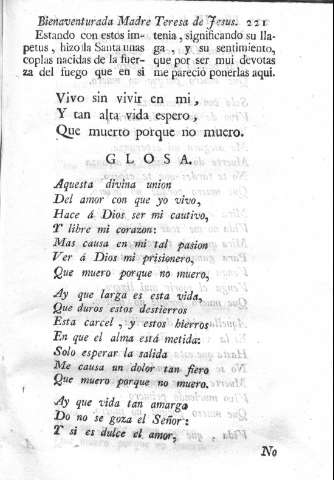 Bienaventurada Madre Teresa de Jesus. 221
Estando con estos im-
petus, hizo la Santa unas
coplas nacidas de la fuer-
za del fuego que en si
tenia, significando su lla-
ga, y su sentimiento,
que por ser mui devotas
me pareció ponerlas aqui.
Vivo sin vivir en mi,
Y tan alta vida espero,
Que muerto porque no muero.
GLOSA.
Aquesta divina union
Del amor con que yo vivo,
Hace á Dios ser mi cautivo,
Y libre mi corazon:
Mas causa en mi tal pasion
Ver á Dios mi prisionero,
Que muero porque no muero,
Ay que larga es esta vida,
Que duros estos destierros
Esta carcel, y estos hierros
En que el alma está metida:
Solo esperar la salida
Me causa un dolor tan fiero
Que muero porque no muero.
Ay que vida tan amarga
Do no se goza el Señor:
Y si es dulce el amor,
No